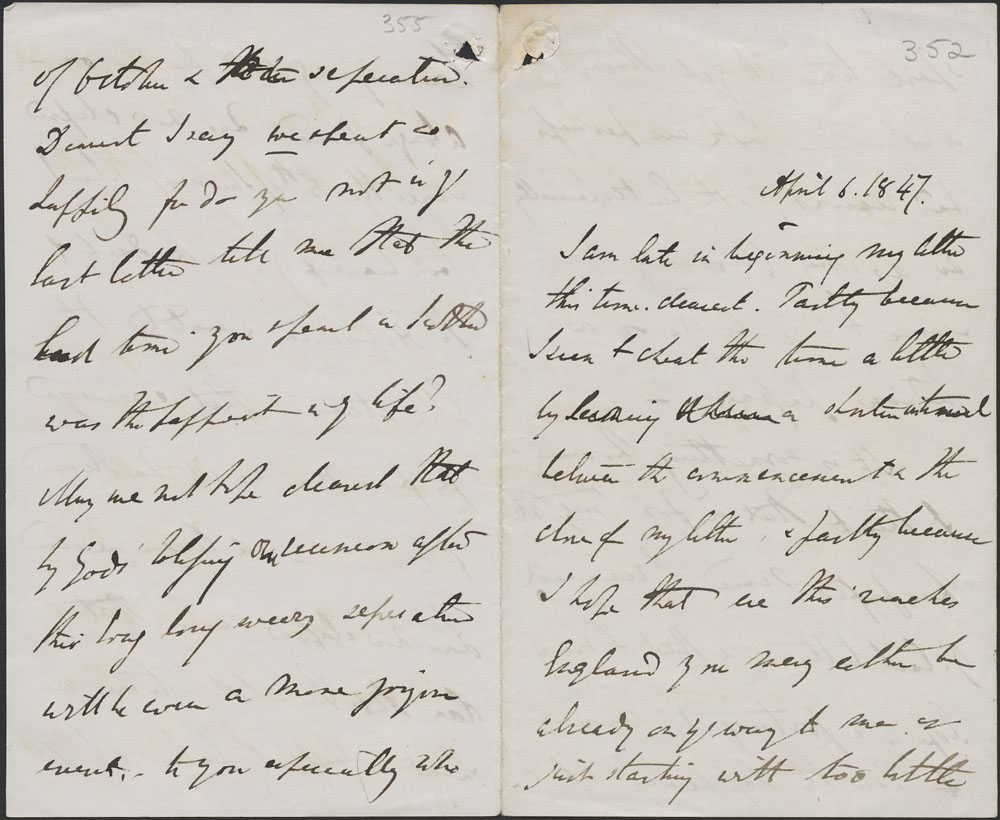 355
of October & separation.
Dearest I say we spent so
happily for do you not in yr
last letter tell me that the
last time you spent a
was the happiest in yr life?
May we not hope dearest that
by God's blessing our reunion after
this long long weary separation
will be even a more joyous
event. - to you especially who
352
April 6. 1847.
I am late in beginning my letter
this time. dearest. Partly because
I seem to cheat the time a little
by leaving a shorter interval
between the commencement & the
close of my letter, & partly because
I hope that ere this reaches
England you may either be
already on yr way to me or
just starting with too little